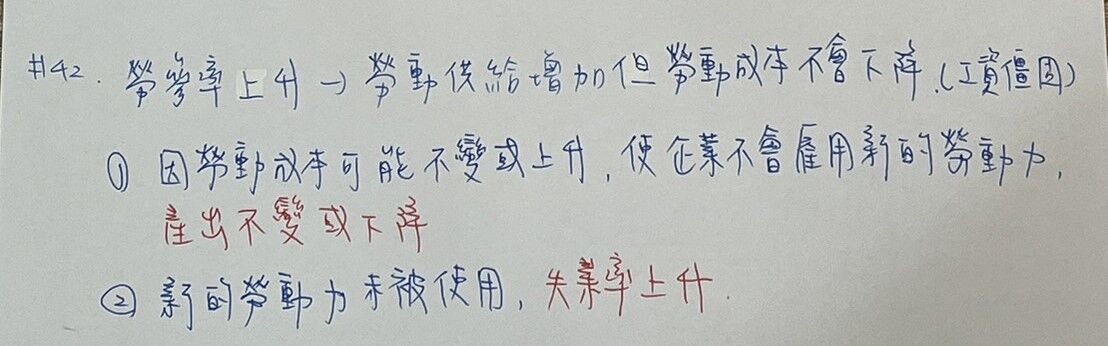 #42. 勞參率上升→勞動供給增加但勞動成本不會下降.(工資僵固)
① 因勞動成本可能不變或上升, 使企業不會雇用新的勞動力,
產出不變或下降
② 新的勞動力未被使用, 失業率上升.